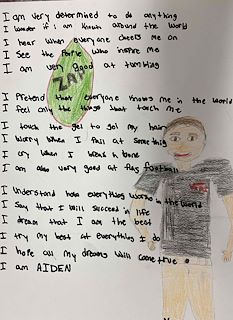 I am very determined to do anything
I wonder if I am known around the world
I hear when everyone cheers me on
I see the people who inspire me
I am very good at tumbling
ZAP
I Pretend that everyone knows me in the world
I feel only the things that touch me
I touch the gel to gel my hair
I worry when I fail at something
I cry when I break a bone
I am also very good at flag football
I understand how everything works in the world
I say that I will succeed in life
I dream that I am the best
I try my best at everything I do
I hope all my dreams will come true
I am AIDEN